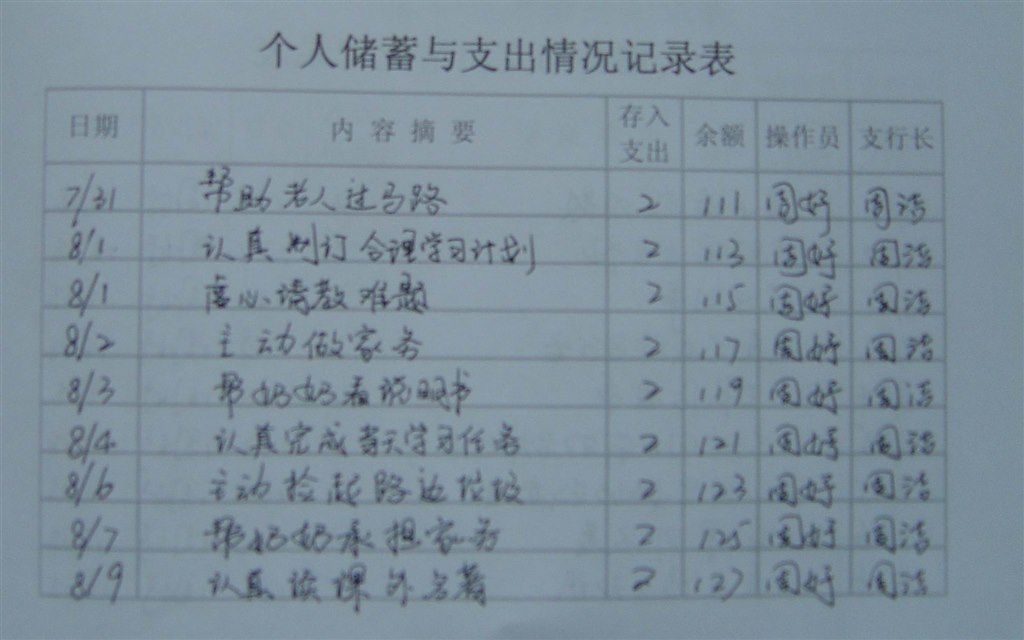 个人储蓄与支出情况记录表
日期 内容摘要 存入支出 余额 操作员 支行长
7/31 帮助老人过马路 2 111 周好 周洁
8/1 认真制订合理学习计划 2 113 周好 周洁
8/1 虚心请教难题 2 115 周好 周洁
8/2 主动做家务 2 117 周好 周洁
8/3 帮奶奶看说明书 2 119 周好 周洁
8/4 认真完成当天学习任务 2 121 周好 周洁
8/6 主动捡起路边垃圾 2 123 周好 周洁
8/7 帮奶奶承担家务 2 125 周好 周洁
8/9 认真读课外名著 2 127 周好 周洁